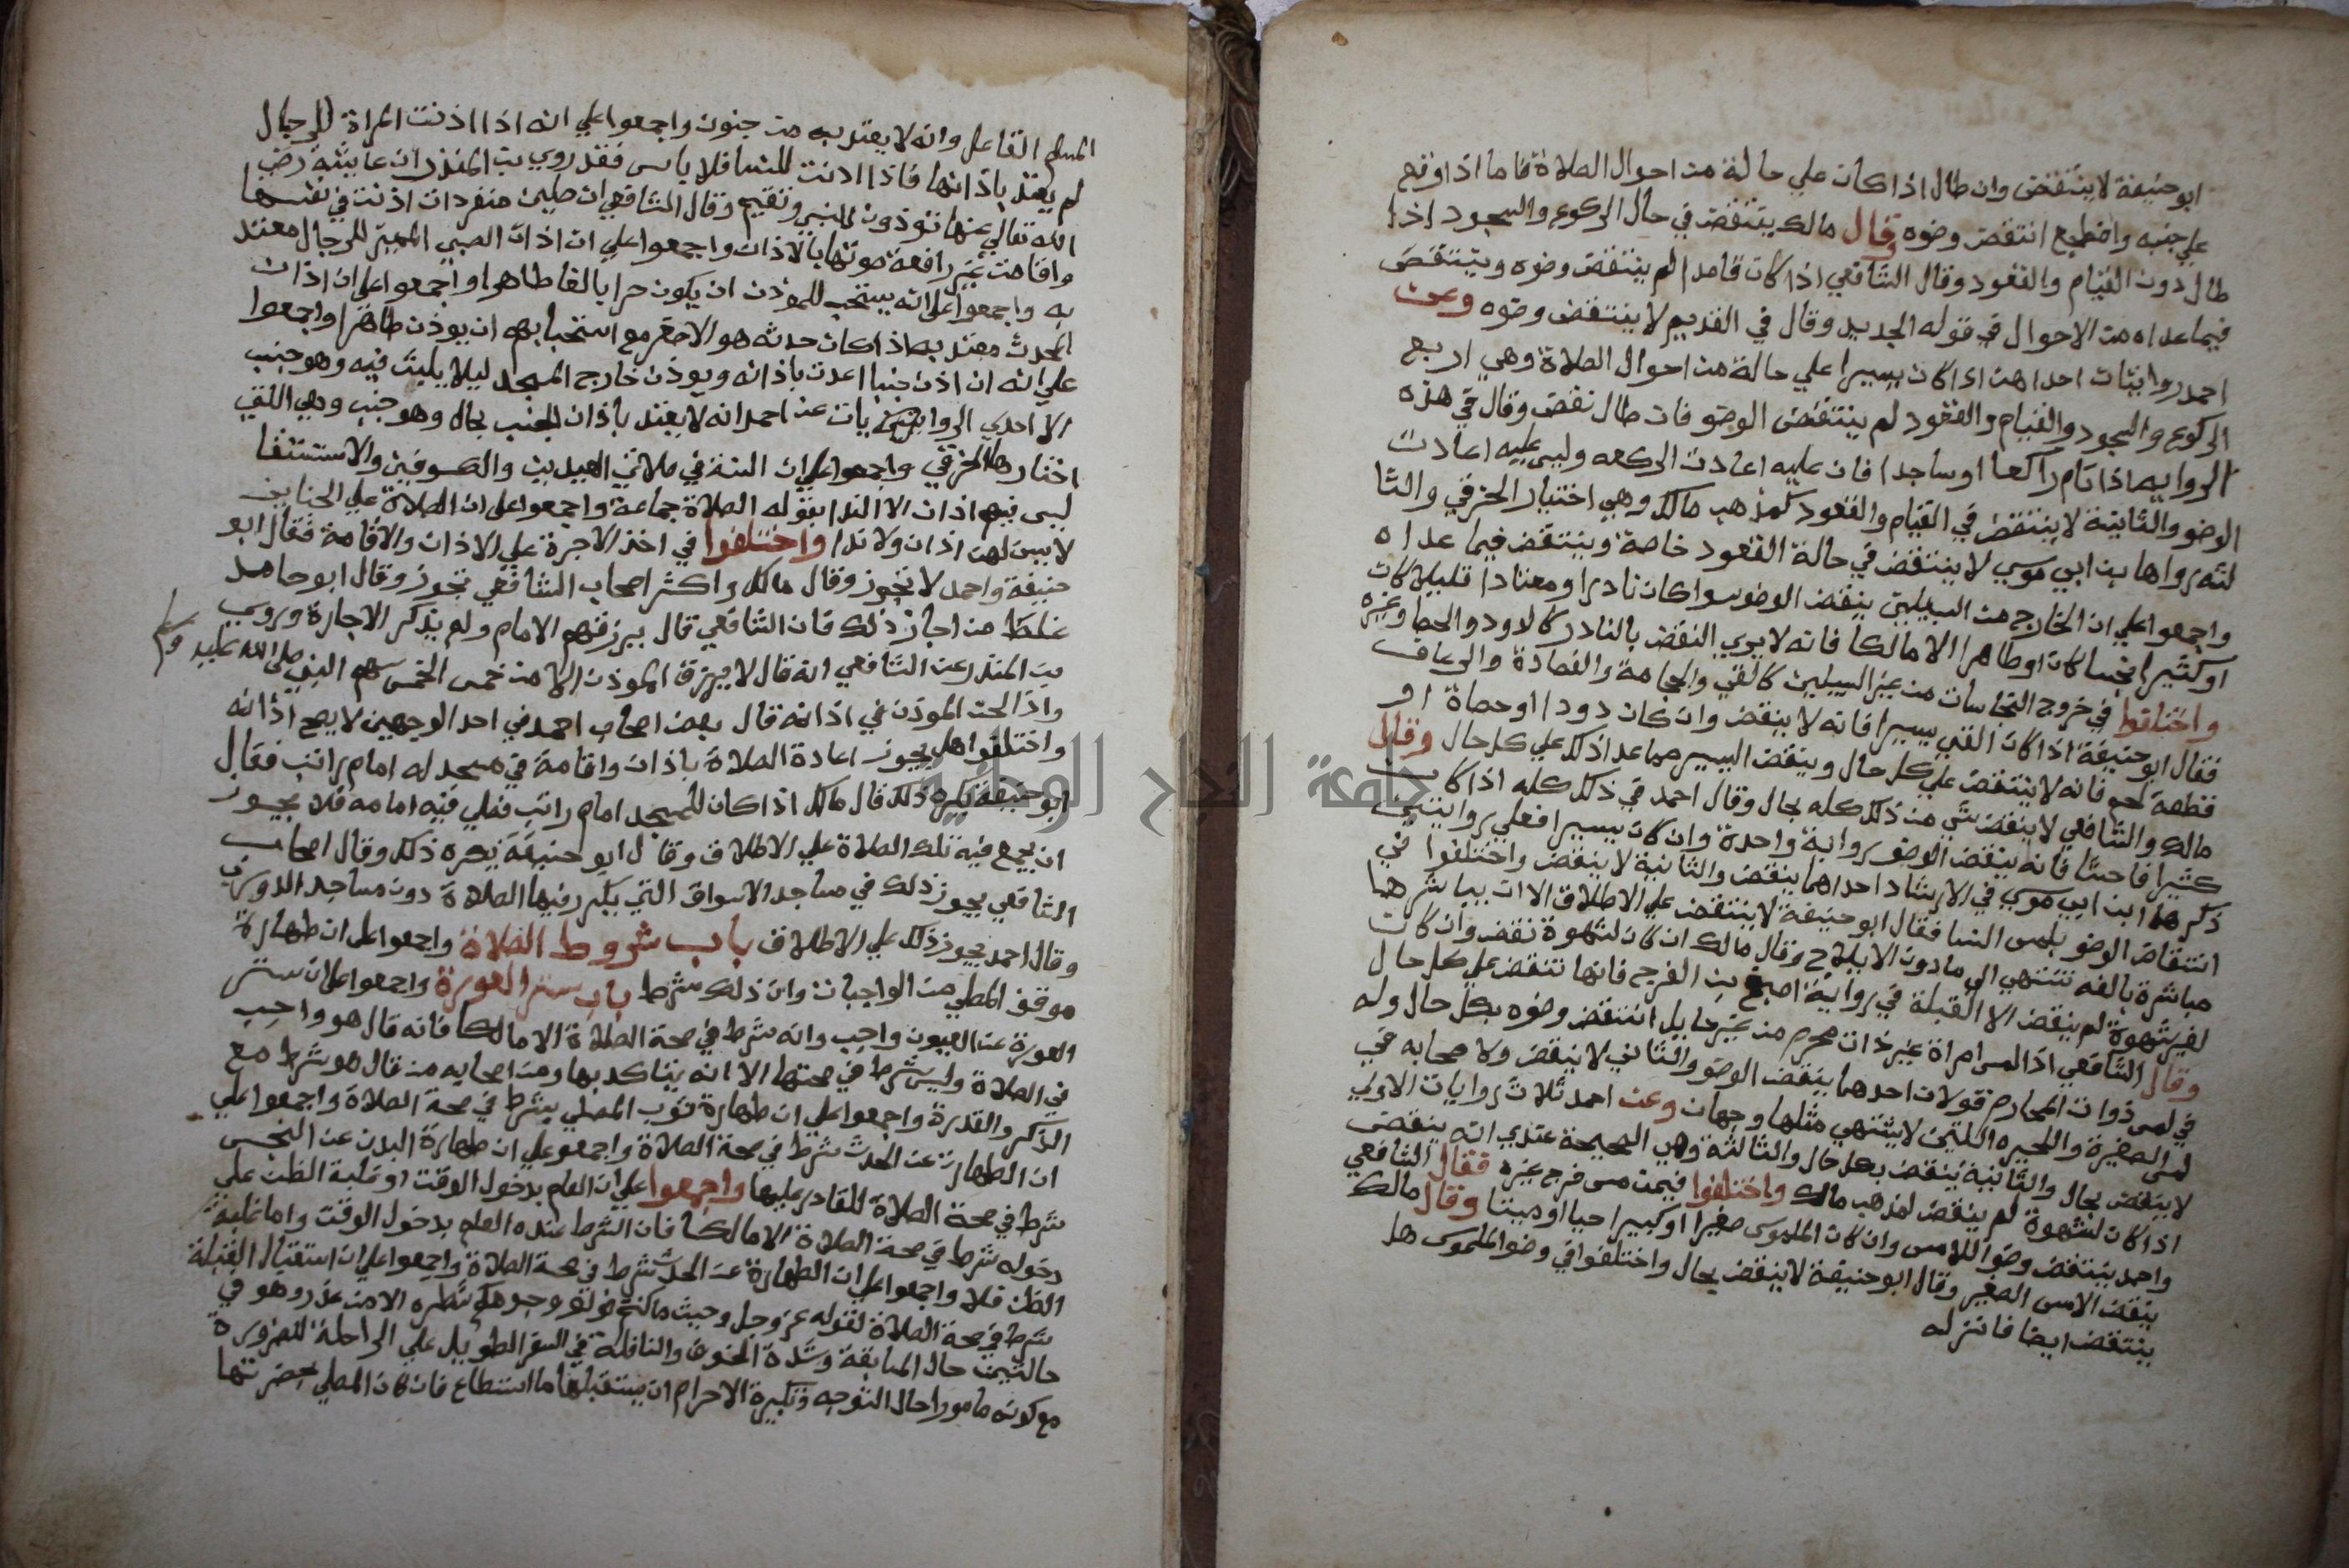 ابو حنيفة لا ينتقض وان طال اذا كان علي حالة من احوال الصلاة فاما اذا وقع
علي جنبه واضطجع انتقض وضوه وقال مالك ينتقض في حال الركوع والسجود اذا
طال دون القيام والقعود وقال الشافعي اذا كان قاعدا لم ينتقض وضوه وينتقض
فيما عداه من الاحوال في قوله الجديد وقال في القديم لا ينتقض وضوه وعن
احمد روايتان احداهن اذا كان يسيرا علي حالة من احوال الصلاة وهي اربع
الركوع والسجود والقيام والقعود لم ينتقض الوضو فان طال نقض وقال في هذه
الروايه اذا نام راكعا او ساجدا فان عليه اعادت الركعه وليس عليه اعادت
الوضو والثانية لا ينتقض في القيام والقعود كمذهب مالك وهي اختيار الخرقي والثا
لثه رواها بن ابي موسي لا ينتقض في حالة القعود خاصة وينتقض فيما عداه
واجمعوا علي ان الخارج من السبيلين ينقض الوضو سوا كان نادرا او معتادا قليلا كان
او كثيرا نجسا كان او طاهرا الا مالكا فانه لا يري النقض بالنادر كالدود والحصا وغيره
واختلفوا في خروج النجاسات من غير السبيلين كالقي والحجامة والفصادة والرعاف
فقال ابو حنيفة اذا كان القي يسيرا فانه لا ينقض وان كان دودا او حصاة او
قطعة لحم فانه لا ينتقض علي كل حال وينقض اليسير مما عدا ذلك علي كل حال وقال
مالك والشافعي لا ينقض شي من ذلك كله بحال وقال احمد في ذلك كله اذا كان
كثيرا فاحشا فانه ينقض الوضو رواية واحدة وان كان يسيرا فعلي روايتين
ذكرها ابن ابي موسي في الارشاد احداهما ينقض والثانية لا ينقض واختلفوا في
انتقاض الوضو بلمس النسا فقال ابو حنيفة لا ينتقض علي الاطلاق الا ان يباشرها
مباشرة بالغه تنتهي الي ما دون الايلاج وقال مالك ان كان لشهوة نقض وان كان
لغير شهوة لم ينقض الا القبلة في رواية اصبغ بن الفرج فانها تنقض علي كل حال
وقال الشافعي اذا لمس امراة غير ذات محرم من غير حايل انتقض وضوه بكل حال وله
في لمس ذوات المحارم قولان احدهما ينقض الوضو والثاني لا ينقض ولاصحابه في
لمس الصغيرة والكبيره اللتين لا يشتهي مثلها وجهان وعن احمد ثلاث روايات الاولي
لا ينقض بحال والثانية ينقض بكل حال والثالثة وهي الصحيحة عندي انه ينقض
اذا كان لشهوة لم ينقض لمذهب مالك واختلفوا فيمن مس فرج غيره فقال الشافعي
واحمد ينتقض وضو اللامس وان كان الملموس صغيرا او كبيرا حيا او ميتا وقال مالك
ينقض الامس الصغير وقال ابو حنيفة لا ينقض بحال واختلفوا في وضو الملموس هل
ينتقض ايضا فانزله
المسلم القاعل وانه لا يعتد به من جنون واجمعوا علي انه اذا اذنت المراة للرجال
لم يعتد باذانها فاذا اذنت للنسا فلا باس فقد روي بن المنذر ان عايشة رضي
الله تعالي عنها توذن للنسي وتقيم وقال الشافعي ان صلين منفردات اذنت في نفسها
واقامت غير رافعة صوتها بالاذان واجمعوا علي ان اذان الصبي المميز للرجال معتد
به واجمعوا علي انه يستحب للموذن ان يكون حرا بالغا طاهرا واجمعوا علي ان اذان
المحدث معتد به اذا كان حدثه هو الاصغر مع استحبابهم ان يوذن طاهرا واجمعوا
علي انه ان اذن جنبا اعدت باذانه ويوذن خارج المسجد ليلا يلبث فيه وهو جنب
الا احدي الروايتين يات عن احمد انه لا يعتد باذان الجنب بحال وهو جنب وهي اللتي
اختارها الخرقي واجمعوا علي ان السنة في صلاتي العيدين والكسوفين والاستسقا
ليس فيهم اذان الا الندا بقوله الصلاة جماعة واجمعوا علي ان الصلاة علي الجنايز
لا يبين لهن اذان ولا ندا واختلفوا في اخذ الاجرة علي الاذان والاقامة فقال ابو
حنيفة واحمد لا تجوز وقال مالك واكثر اصحاب الشافعي تجوز وقال ابو حامد
غلط من اجاز ذلك فان الشافعي قال يرزقهم الامام ولم يذكر الاجارة وروي
بن المنذر عن الشافعي انه قال لا يرزق الموذن الا من خمس الخمس سهم النبي صلي الله عليه وسلم
واذا لحن الموذن في اذانه قال بعض اصحاب احمد في احد الوجهين لا يصح اذانه
واختلفوا هل يجوز اعادة الصلاة باذان واقامة في مسجد له امام راتب فقال
ابو حنيفة يكره ذلك قال مالك اذا كان للمسجد امام راتب فصلي فيه امامه فلا يجوز
ان يجمع فيه تلك الصلاة علي الاطلاق وقال ابو حنيفة يكره ذلك وقال اصحاب
الشافعي يجوز ذلك في مساجد الاسواق التي يكرر فيها الصلاة دون مساجد الدروب
وقال احمد يجوز ذلك علي الاطلاق باب شروط الصلاة واجمعوا علي ان طهارة
موقف المصلي من الواجبات وان ذلك شرط باب ستر العورة واجمعوا علي ان ستر
العورة عن العيون واجب وانه شرط في صحة الصلاة الا مالكا فانه قال هو واجب
في الصلاة وليس شرط في صحتها الا انه يتاكد بها ومن اصحابه من قال هو شرط مع
الذكر والقدرة واجمعوا علي ان طهارة ثوب المصلي شرط في صحة الصلاة واجمعوا علي
ان الطهارة عن الحدث شرط في صحة الصلاة واجمعو علي ان طهارة البدن عن النجس
شرط في صحة الصلاة للقادر عليها واجمعوا علي ان العلم بدخول الوقت او غلبة الظن علي
دخوله شرط في صحة الصلاة الا مالكا فان الشرط عنده العلم بدخول الوقت واما غلبة
الظن فلا واجمعوا علي ان الطهارة عن الحدث شرط في صحة الصلاة واجمعوا علي ان استقبال القبلة
شرط في صحة الصلاة لقوله عز وجل وحيث ما كنتم فولو وجوهكم شطره الا من عذر وهو في
حالتين حال المسابقة وشدة الخوف والنافلة في السفر الطويل علي الراحلة للضرورة
مع كونه مامورا حال التوجه وتكبيرة الاحرام ان يستقبلها ما استطاع فان كان المصلي بحضرتها
جامعة النجاح الوطنية